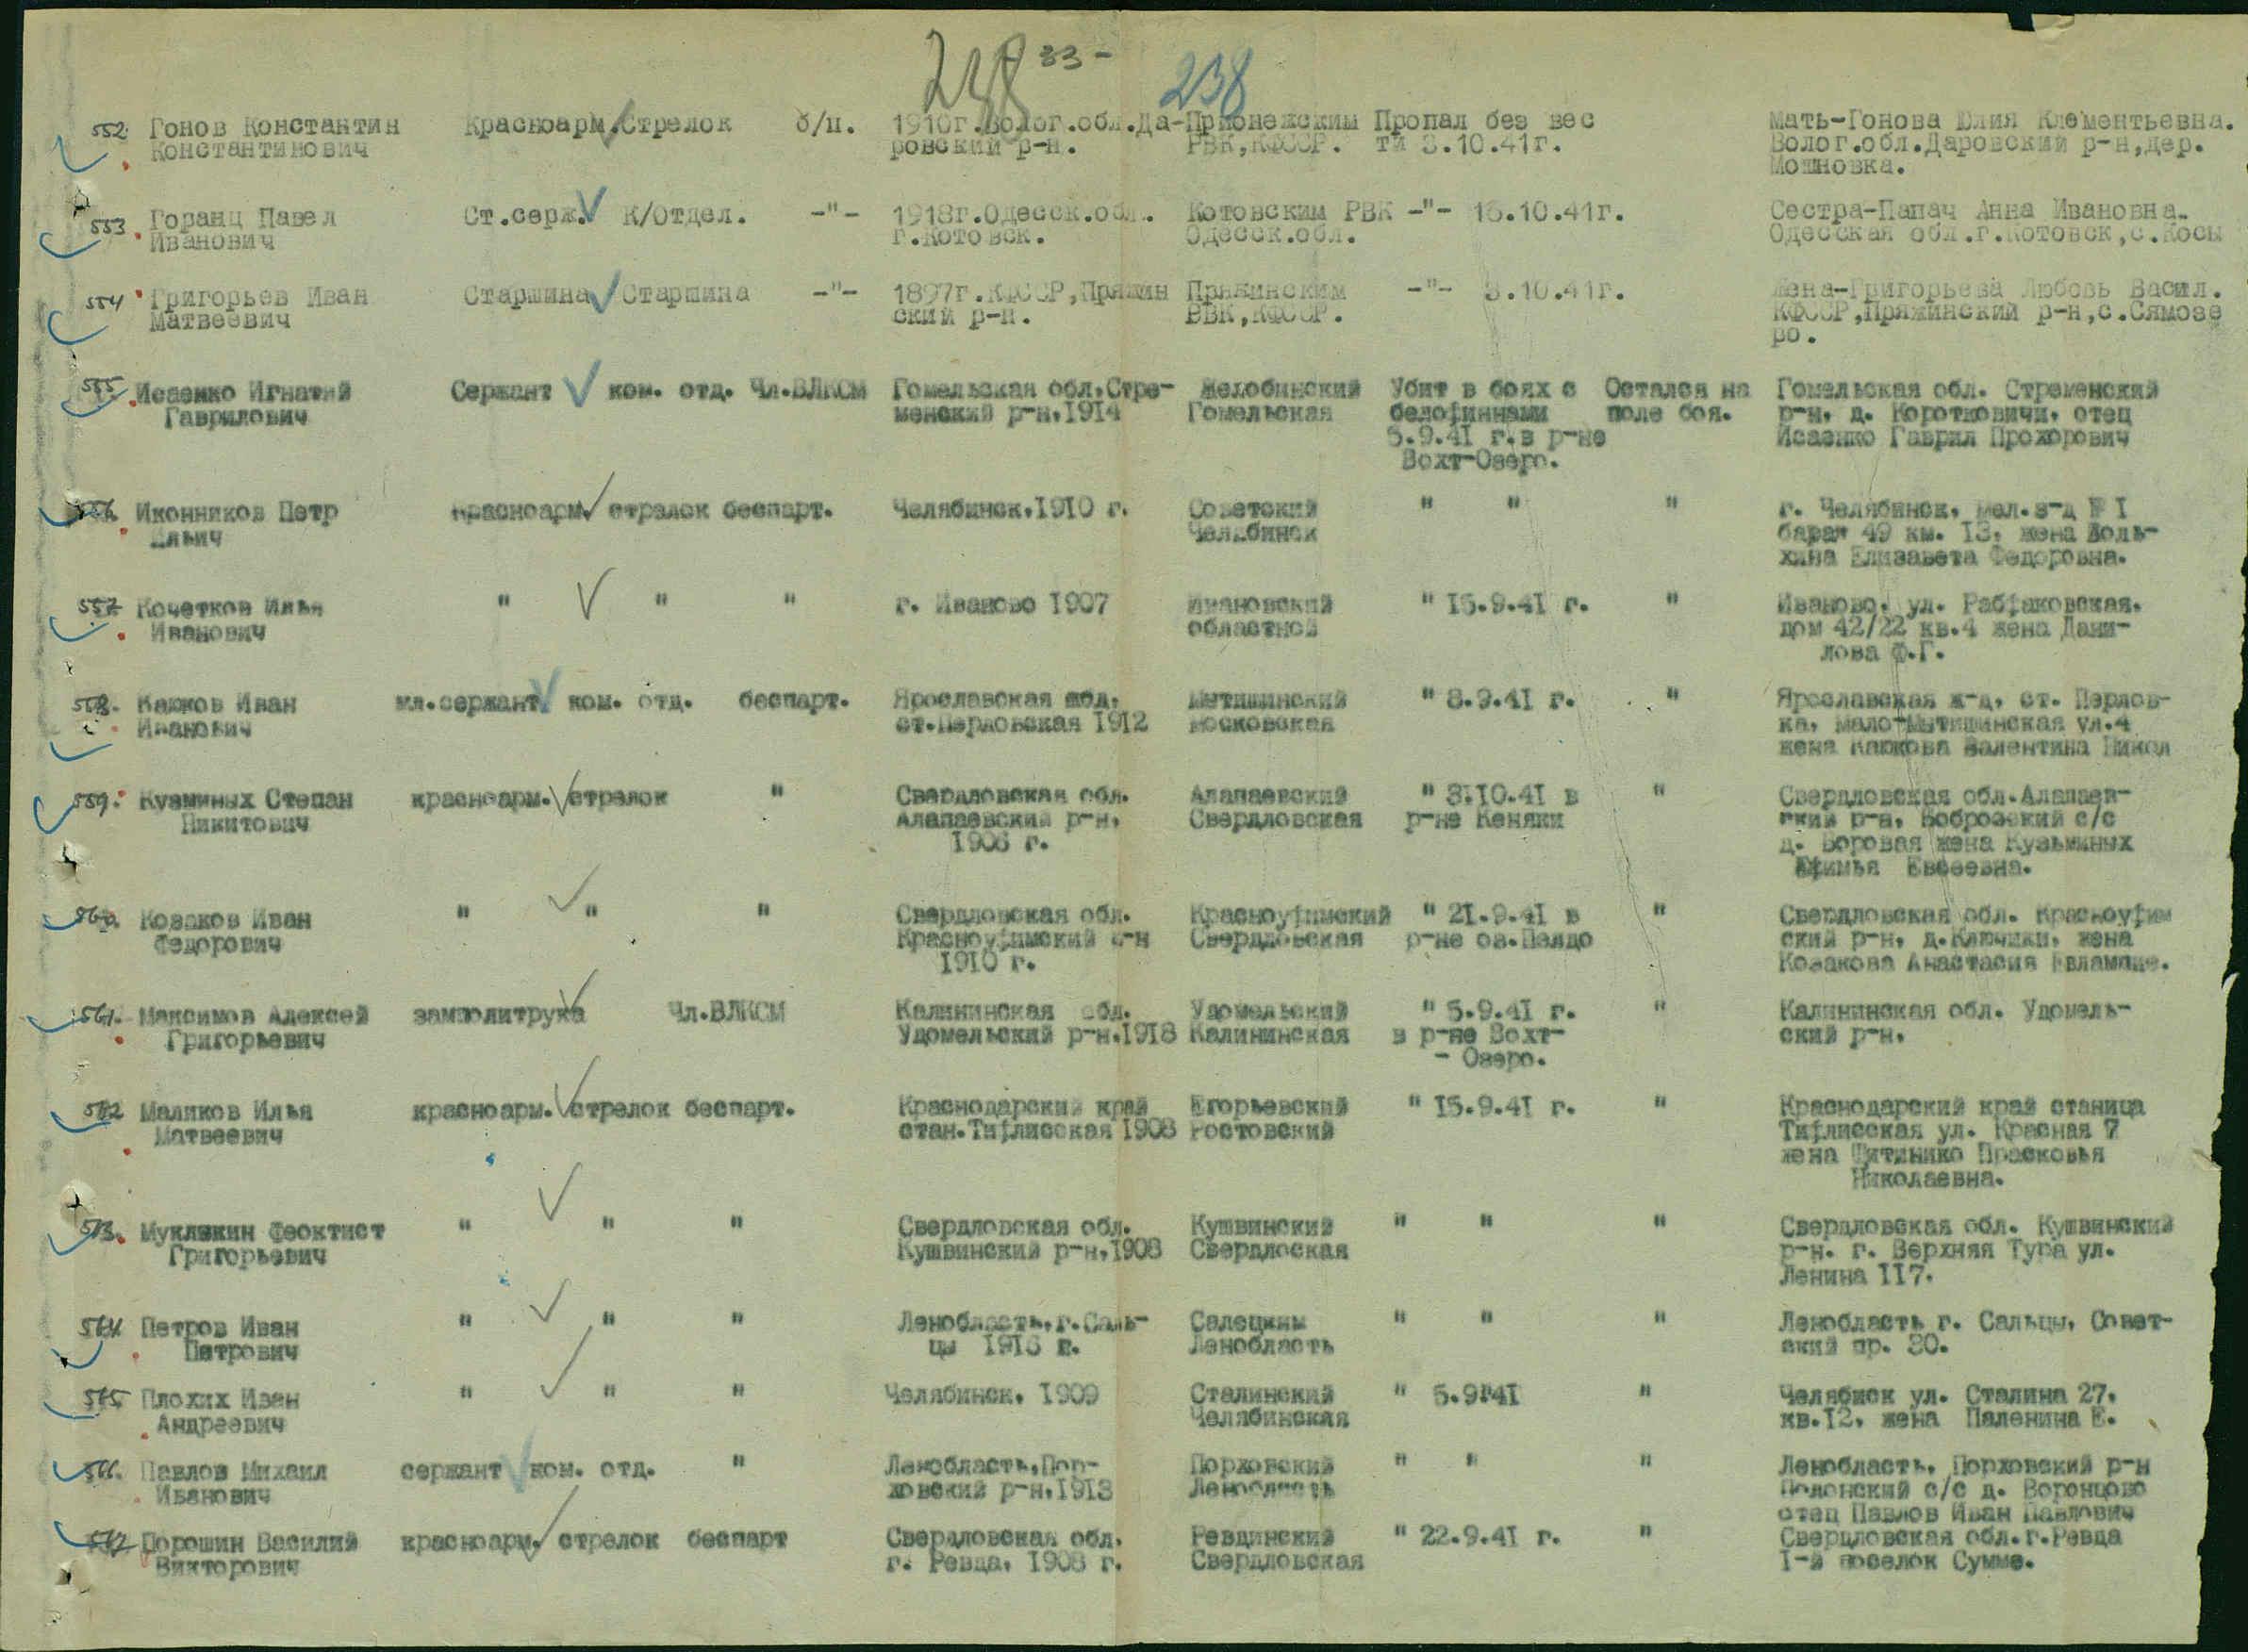 238 33- 238
552. Гонов Константин Красноарм. Стрелок б/п. 1910г.Волог.обл.Да- Прионежским Пропал без вес Мать-Гонова Юлия Клементьевна.
Константинович ровский р-н. РВК,КФССР. ти 3.10.41г. Волог.обл.Даровский р-н,дер.
Мошновка.
553. Горанц Павел Ст.серж. К/Отдел. -"- 1918г.Одесск.обл. Котовским РВК -"- 16.10.41г. Сестра-Папач Анна Ивановна.
Иванович г.Котовск. Одесск.обл. Одесская обл.г.Котовск,с.Косы
554 Григорьев Иван Старшина Старшина -"- 1897г.КФССР,Пряжин Пряжинским -"- 3.10.41г. Жена-Григорьева Любовь Васил.
Матвеевич ский р-н. РВК,КФССР. КФССР,Пряжинский р-н,с.Сямозе
ро.
555 Исаенко Игнатий Сержант ком. отд. Чл.ВЛКСМ Гомельская обл.Стре- Желобинский Убит в боях с Остался на Гомельская обл. Стременский
Гаврилович менский р-н.1914 Гомельская белофиннами поле боя. р-н. д. Коротковичи. отец
5.9.41 г.в р-не Исаенко Гаврил Прохорович
Вохт-Озеро.
556. Иконников Петр красноарм. стрелок беспарт. Челябинск.1910 г. Советский " " " г. Челябинск. мел.з-д № I
Ильич Челябинск барак 49 км. 13. жена Воль-
хина Елизавета Федоровна.
557 Кочетков Илья " " " г. Иваново 1907 Ивановский " 15.9.41 г. " Иваново. ул. Рабфаковская.
Иванович областной дом 42/22 кв.4 жена Дани-
лова Ф.Г.
558. Кажков Иван мл.сержант ком. отд. беспарт. Ярославская жод. Мытищинский " 8.9.41 г. " Ярославская ж-д, ст. Перлов-
Иванович ст.Перловская 1912 Московская ка. Мало-Мытищинская ул.4
жена Кажкова Валентина Никол
559. Кузминых Степан красноарм. стрелок " Свердловская обл. Алапаевский " 3.10.41 в " Свердловская обл.Алапаев-
Никитович Алапаевский р-н. Свердловская р-не Кеняки ский р-н. Бобровский с/с
1906 г. д. Боровая жена Кузьминых
Ефимья Евсеевна.
560. Козаков Иван " " " Свердловская обл. Красноуфимский " 21.9.41 в " Свердловская обл. Красноуфим
Федорович Красноуфимский р-н Свердловская р-не ов.Палдо ский р-н. д.Ключики. жена
1910 г. Козакова Анастасия Евлампие.
561. Максимов Алексей замполитрука Чл.ВЛКСМ Калининская обл. Удомельский " 5.9.41 г. " Калининская обл. Удомель-
Григорьевич Удомельский р-н.1918 Калининская в р-не Вохт- ский р-н.
- Озеро.
562 Маликов Илья красноарм. стрелок беспарт. Краснодарский край Егорьевский " 15.9.41 г. " Краснодарский край станица
Матвеевич стан.Тифлисская 1908 Ростовский Тифлисская ул. Красная 7
жена Прасковья
Николаевна.
563. Муклыкин Феоктист " " " Свердловская обл. Кушвинский " " " Свердловская обл. Кушвинский
Григорьевич Кушвинский р-н.1908 Свердлоская р-н. г. Верхняя Тура ул.
Ленина 117.
564 Петров Иван " " " Ленобласть.г.Саль- Салецким " " " Ленобласть г. Сальцы. Совет-
Петрович цы 1916 г. Ленобласть ский пр. 30.
565 Плохих Иван " " " Челябинск. 1909 Сталинский " 5.9г41 " Челябиск ул. Сталина 27.
Андреевич Челябинская кв.12. жена Паленина Е.
566. Павлов Михаил сержант ком. отд. " Ленобласть.Пор- Порховский " " " Ленобласть. Порховский р-н
Иванович ховский р-н.1913 Ленобласть Полонский с/с д. Воронцово
отец Павлов Иван Павлович
567 Порошин Василий красноарм. стрелок беспарт Свердловская обл. Ревдинский " 22.9.41 г. " Свердловская обл.г.Ревда
Викторович г. Ревда. 1908 г. Свердловская I-й поселок Сумме.